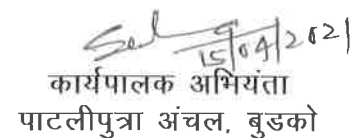 15/04/2021
कार्यपालक अभियंता
पाटलीपुत्रा अंचल, बुडको